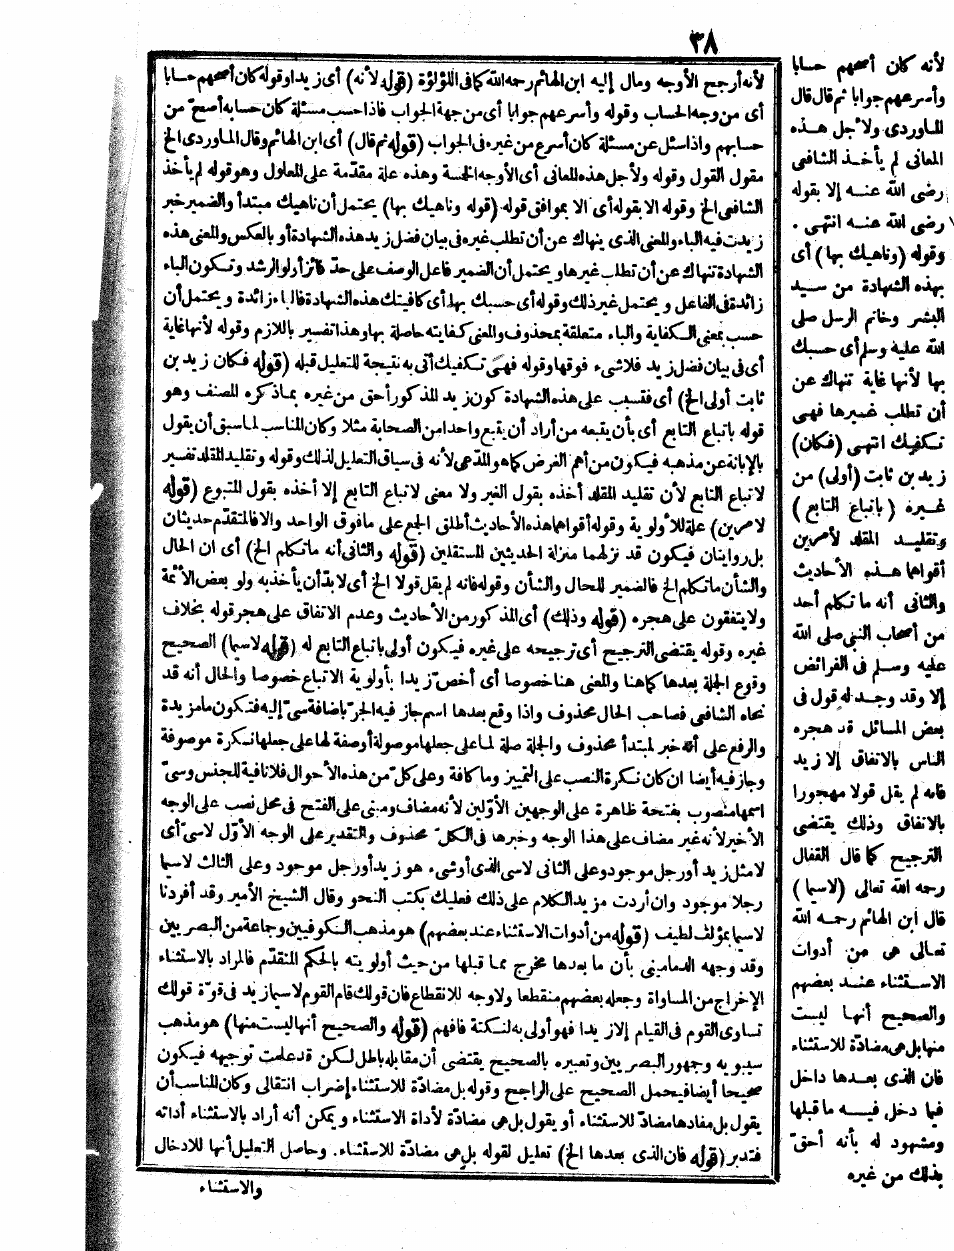 ٣٨
لأنه كان أصحهم حسابا
وأسرعهم جوابا ثم قال قال
الماوردى ولأجل هذه
المعانى لم يأخذ الشافعى
رضى الله عنه إلا بقوله
رضى الله عنه انتهى .
وقوله (وناهيك بها) أى
بهذه الشهادة من سيد
البشر وخاتم الرسل صلى
الله عليه وسلم أى حسبك
بها لأنها غاية تنهاك عن
أن تطلب غيرها فهى
تكفيك انتهى (فكان)
زيد بن ثابت (أولى) من
غيره (باتباع التابع)
وتقليد المقلد لأمرين
أقواهما هذه الأحاديث
والثانى أنه ما تكلم أحد
من أصحاب النبى صلى الله
عليه وسلم فى الفرائض
إلا وقد وجد له قول فى
بعض المسائل قد هجره
الناس بالاتفاق إلا زيد
فانه لم يقل قولا مهجورا
بالاتفاق وذلك يقتضى
الترجيح كما قال القفال
رحمه الله تعالى (لاسيما)
قال ابن الهائم رحمه الله
تعالى هى من أدوات
الاستثناء عند بعضهم
والصحيح أنها ليست
منها بل هى مضادة للاستثناء
فان الذى بعدها داخل
فيما دخل فيه ما قبلها
ومشهود له بأنه أحق
بذلك من غيره
لأنه أرجح الأوجه ومال إليه ابن الهائم رحمه الله كما فى اللؤلؤة (قوله لأنه) أى زيدا وقوله كان أصحهم حسابا
أى من وجه الحساب وقوله وأسرعهم جوابا أى من جهة الجواب فاذا حسب مسئلة كان حسابه أصح من
حسابهم واذا سئل عن مسئلة كان أسرع من غيره فى الجواب (قوله ثم قال) أى ابن الهائم وقال الماوردى الخ
مقول القول وقوله ولأجل هذه المعانى أى الأوجه الخمسة وهذه علة مقدمة على المعلول وهو قوله لم يأخذ
الشافعى الخ وقوله الا بقوله أى الا بموافق قوله (قوله وناهيك بها) يحتمل أن ناهيك مبتدأ والضمير خبر
زيدت فيه الباء والمعنى الذى ينهاك عن أن تطلب غيره فى بيان فضل زيد هذه الشهادة أو بالعكس والمعنى هذه
الشهادة تنهاك عن أن تطلب غيرها ويحتمل أن الضمير فاعل الوصف على حد فائز أولو الرشد وتكون الباء
زائدة فى الفاعل ويحتمل غير ذلك وقوله أى حسبك بها أى كافيتك هذه الشهادة فالباء زائدة ويحتمل أن
حسب بمعنى الكفاية والباء متعلقة بمحذوف والمعنى كفايته حاصلة بها وهذا تفسير باللازم وقوله لأنها غاية
أى فى بيان فضل زيد فلا شىء فوقها وقوله فهى تكفيك أتى به نتيجة للتعليل قبله (قوله فكان زيد بن
ثابت أولى الخ) أى فتسبب على هذه الشهادة كون زيد المذكور أحق من غيره بما ذكره المصنف وهو
قوله باتباع التابع أى بأن يتبعه من أراد أن يتبع واحدا من الصحابة مثلا وكان المناسب لما سبق أن يقول
بالإبانة عن مذهبه فيكون من أهم الغرض كما هو المدعى لأنه فى سياق التعليل لذلك وقوله وتقليد المقلد تفسير
لاتباع التابع لأن تقليد المقلد أخذه بقول الغير ولا معنى لاتباع التابع إلا أخذه بقول المتبوع (قوله
لأمرين) علة للأولوية وقوله أقواهما هذه الأحاديث أطلق الجمع على ما فوق الواحد والا فالمتقدم حديثان
بل روايتان فيكون قد نزلهما منزلة الحديثين المستقلين (قوله والثانى أنه ما تكلم الخ) أى ان الحال
والشأن ما تكلم الخ فالضمير للحال والشأن وقوله فانه لم يقل قولا الخ أى لا بد أن يأخذ به ولو بعض الأئمة
ولا يتفقون على هجره (قوله وذلك) أى المذكور من الأحاديث وعدم الاتفاق على هجر قوله بخلاف
غيره وقوله يقتضى الترجيح أى ترجيحه على غيره فيكون أولى باتباع التابع له (قوله لاسيما) الصحيح
وقوع الجملة بعدها كما هنا والمعنى هنا خصوصا أى أخص زيدا بأولوية الاتباع خصوصا والحال أنه قد
نحاه الشافعى فصاحب الحال محذوف واذا وقع بعدها اسم جاز فيه الجر باضافة سى إليه فتكون ما مزيدة
والرفع على أنه خبر لمبتدأ محذوف والجملة صلة لما على جعلها موصولة أو صفة لها على جعلها نكرة موصوفة
وجاز فيه أيضا ان كان نكرة النصب على التمييز وما كافة وعلى كل من هذه الأحوال فلا نافية للجنس وسى
اسمها منصوب بفتحة ظاهرة على الوجهين الأولين لأنه مضاف ومبنى على الفتح فى محل نصب على الوجه
الأخير لأنه غير مضاف على هذا الوجه وخبرها فى الكل محذوف والتقدير على الوجه الأول لاسى أى
لا مثل زيد أو رجل موجود وعلى الثانى لاسى الذى أو شىء هو زيد أو رجل موجود وعلى الثالث لاسيما
رجلا موجود وان أردت مزيد الكلام على ذلك فعليك بكتب النحو وقال الشيخ الأمير وقد أفردنا
لاسيما بمؤلف لطيف (قوله من أدوات الاستثناء عند بعضهم) هو مذهب الكوفيين وجماعة من البصريين
وقد وجهه الدمامينى بأن ما بعدها مخرج مما قبلها من حيث أولويته بالحكم المتقدم فالمراد بالاستثناء
الإخراج من المساواة وجعله بعضهم منقطعا ولا وجه للانقطاع فان قولك قام القوم لاسيما زيد فى قوة قولك
تساوى القوم فى القيام إلا زيدا فهو أولى به لنكتة فافهم (قوله والصحيح أنها ليست منها) هو مذهب
سيبويه وجمهور البصريين وتعبيره بالصحيح يقتضى أن مقابله باطل لكن قد علمت توجيهه فيكون
صحيحا أيضا فيحمل الصحيح على الراجح وقوله بل مضادة للاستثناء إضراب انتقالى وكان المناسب أن
يقول بل مفادها مضاد للاستثناء أو يقول بل هى مضادة لأداة الاستثناء ويمكن أنه أراد بالاستثناء أداته
فتدبر (قوله فان الذى بعدها الخ) تعليل لقوله بل هى مضادة للاستثناء. وحاصل التعليل أنها للادخال
والاستثناء